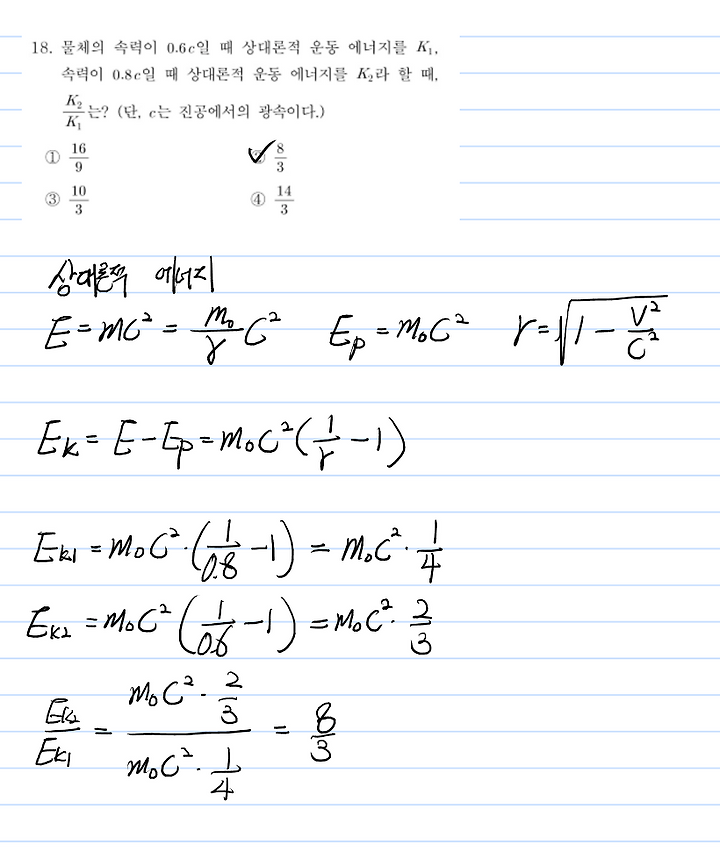 18. 물체의 속력이 0.6c일 때 상대론적 운동 에너지를 K₁,
속력이 0.8c일 때 상대론적 운동 에너지를 K₂라 할 때,
K₂/K₁는? (단, c는 진공에서의 광속이다.)
① 16/9 ② 8/3
③ 10/3 ④ 14/3
상대론적 에너지
E = mC² = m₀/γ C² Eₚ = m₀C² γ = √(1 − V²/C²)
Eₖ = E − Eₚ = m₀C²(1/γ − 1)
Eₖ₁ = m₀C²·(1/0.8 − 1) = m₀C²·1/4
Eₖ₂ = m₀C²(1/0.6 − 1) = m₀C²·2/3
Eₖ₂/Eₖ₁ = (m₀C²·2/3)/(m₀C²·1/4) = 8/3